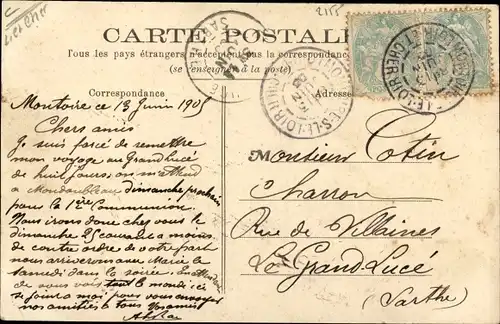 2155
CARTE POSTALE
Tous les pays étrangers n'acceptent pas la correspondance
(se renseigner à la poste)
Correspondance
Adresse
Montoire ce 13 Juin 1905
Chers amis
Je suis forcé de remettre
mon voyage au Grand Lucé
de huit jours, on m'attend
a dimanche prochain
pour la 1ère Communion
Nous irons donc chez vous le
dimanche 25 courant a moins
de contre ordre de votre part
nous arriverons avec Marie le
samedi dans la soirée.
de vous voir tout le monde ici
se joint a moi pour vous envoyer
nos amitiés a tous
Monsieur Totin
Charron
Rue de Villaines
Le Grand-Lucé
(Sarthe)